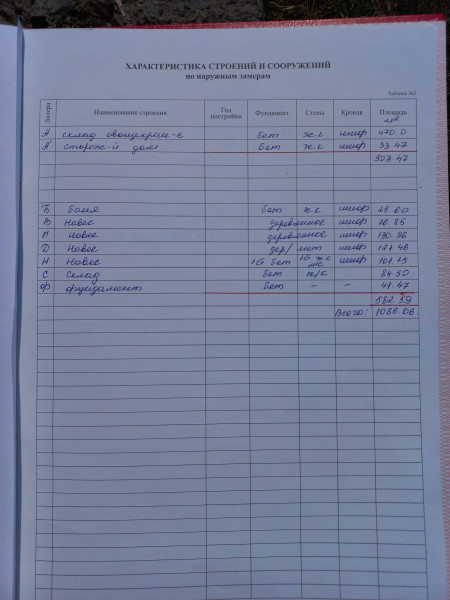 ХАРАКТЕРИСТИКА СТРОЕНИЙ И СООРУЖЕНИЙ
по наружным замерам
Таблица №2
Литера Наименование строения Год постройки Фундамент Стены Кровля Площадь м²
А склад овощехран-е бет ж.к шиф 470.0
А' сторож-й дом бет ж.к шиф 33.47
503.47
Б Баня бет ж.к шиф 25.60
В Навес деревянное шиф 76.85
Г Навес деревянное шиф 130.36
Д Навес дер/мет шиф 127.46
Н Навес бет ж.к шиф 101.75
С Склад бет ж/к 84.50
Ф фундамент бет – – 41.47
582.59
Всего: 1086.06